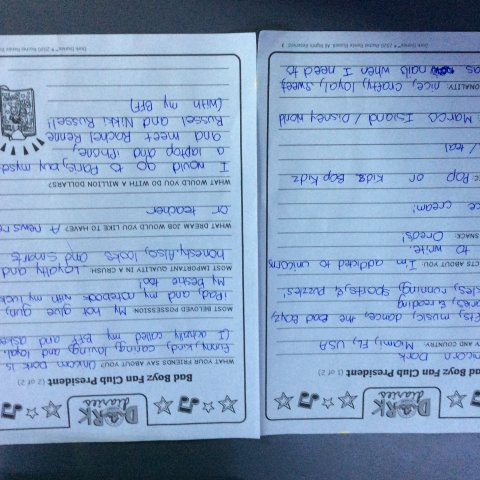 DORK
diaries
Bad Boyz Fan Club President (1 of 2)
corn Dork
Y AND COUNTRY: Miami, FL, USA
music, dance, the Bad Boyz,
& reading
running, sports, & puzzles!
CTS ABOUT YOU: I'm addicted to unicorns
to write.
SNACK: Oreos!
ce cream!
Bop or Kidz Bop Kidz
/ teal
Marco Island / Disney world
ONALITY: nice, crafty, loyal, sweet
as nails when I need to
DORK
diaries
Bad Boyz Fan Club President (2 of 2)
WHAT YOUR FRIENDS SAY ABOUT YOU? Unicorn Dork is
Funny, kind, caring, loving, and loyal
(I actually called my BFF and asked
MOST BELOVED POSSESSION: My hot glue gun,
iPad, and my notebook with my luck
My bestie too!
MOST IMPORTANT QUALITY IN A CRUSH: Loyalty and
honesty. Also, looks and smarts
WHAT DREAM JOB WOULD YOU LIKE TO HAVE? A news re
or teacher
WHAT WOULD YOU DO WITH A MILLION DOLLARS?
I would go to Paris, buy myse
a laptop and iPhone,
and meet Rachel Renne
Russell and Nikki Russell
(with my BFF)